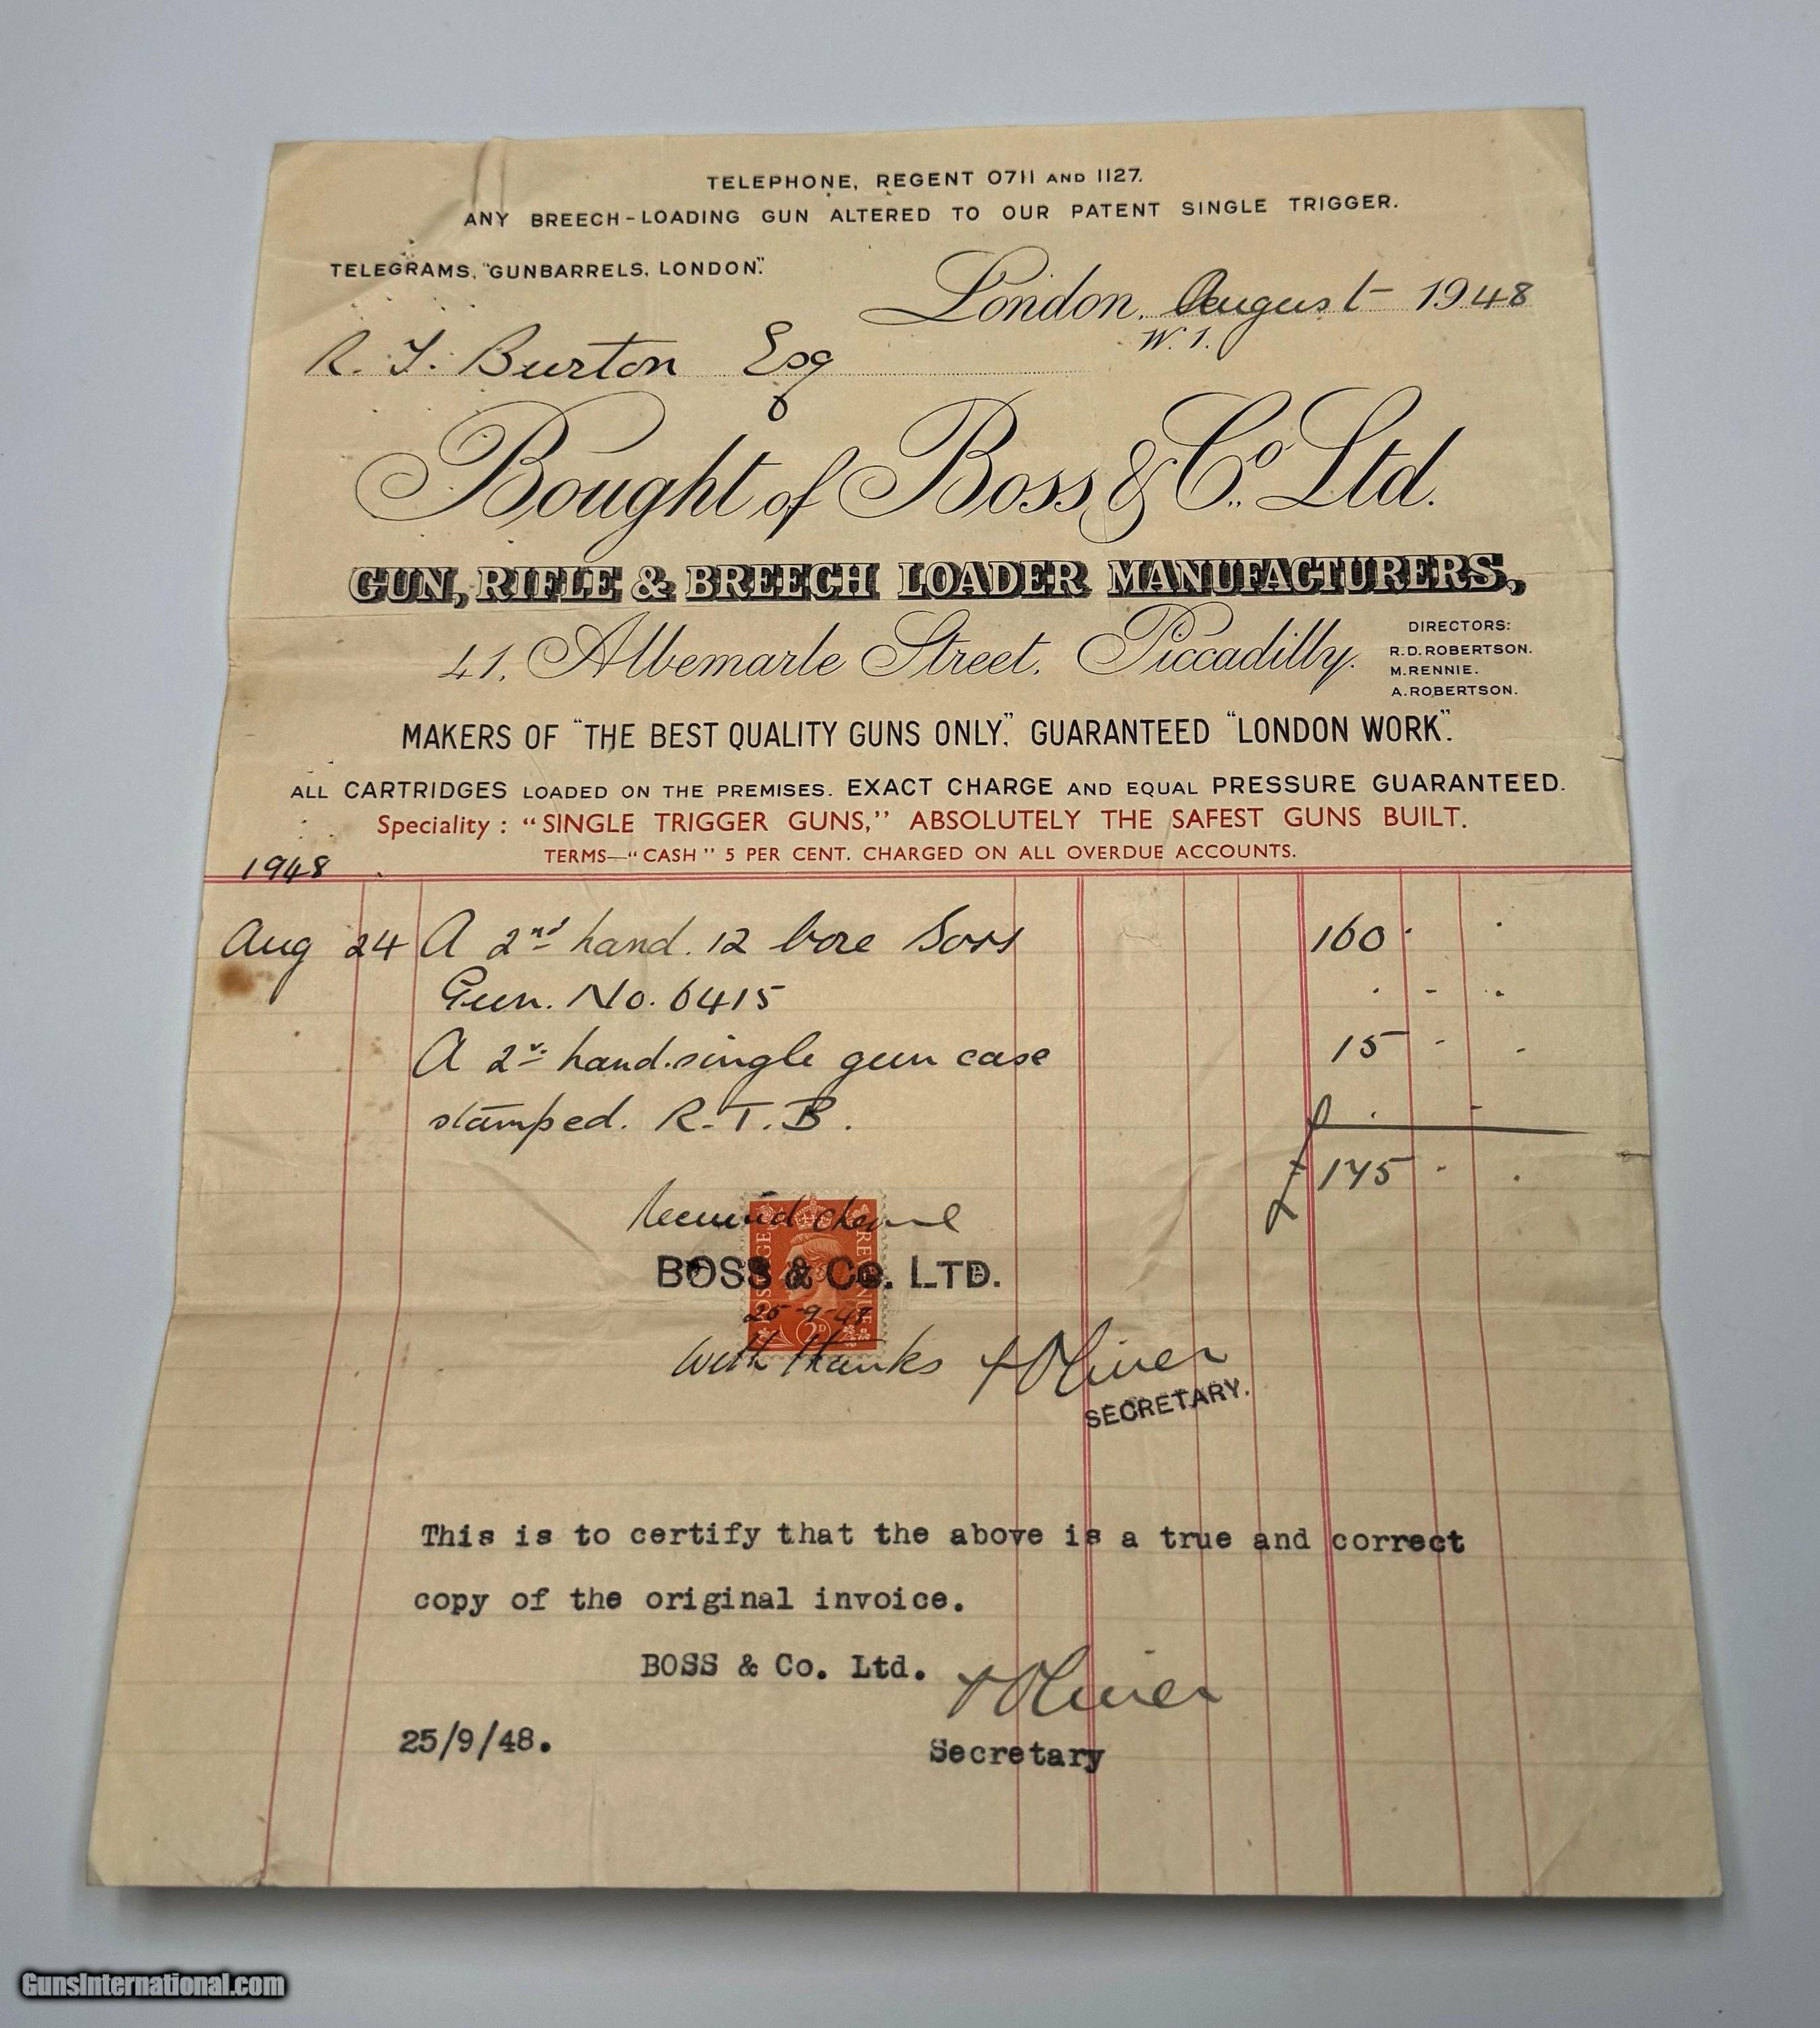 TELEPHONE, REGENT 0711 AND 1127.
ANY BREECH-LOADING GUN ALTERED TO OUR PATENT SINGLE TRIGGER.
TELEGRAMS, "GUNBARRELS, LONDON".
London, August 1948
W.1.
R. T. Burton Esq
Bought of Boss & Co. Ltd.
GUN, RIFLE & BREECH LOADER MANUFACTURERS,
41, Albemarle Street, Piccadilly.
DIRECTORS:
R.D. ROBERTSON.
M. RENNIE.
A. ROBERTSON.
MAKERS OF "THE BEST QUALITY GUNS ONLY," GUARANTEED "LONDON WORK".
ALL CARTRIDGES LOADED ON THE PREMISES. EXACT CHARGE AND EQUAL PRESSURE GUARANTEED.
Speciality: "SINGLE TRIGGER GUNS," ABSOLUTELY THE SAFEST GUNS BUILT.
TERMS—"CASH" 5 PER CENT. CHARGED ON ALL OVERDUE ACCOUNTS.
1948
Aug 24 A 2nd hand. 12 bore Boss 160 . .
Gun. No. 6415 . - .
A 2nd hand single gun case 15 - .
stamped. R.T.B.
£175 - .
Received cheque
POSTAGE REVENUE
BOSS & Co. LTD.
25-9-48
2D
with thanks Oliver
SECRETARY.
This is to certify that the above is a true and correct
copy of the original invoice.
BOSS & Co. Ltd. Oliver
25/9/48.
Secretary
GunsInternational.com